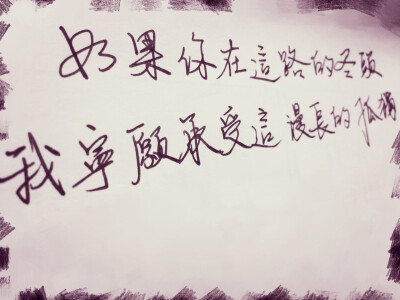 如果你在這路的尽頭
我寧願承受這漫長的孤獨